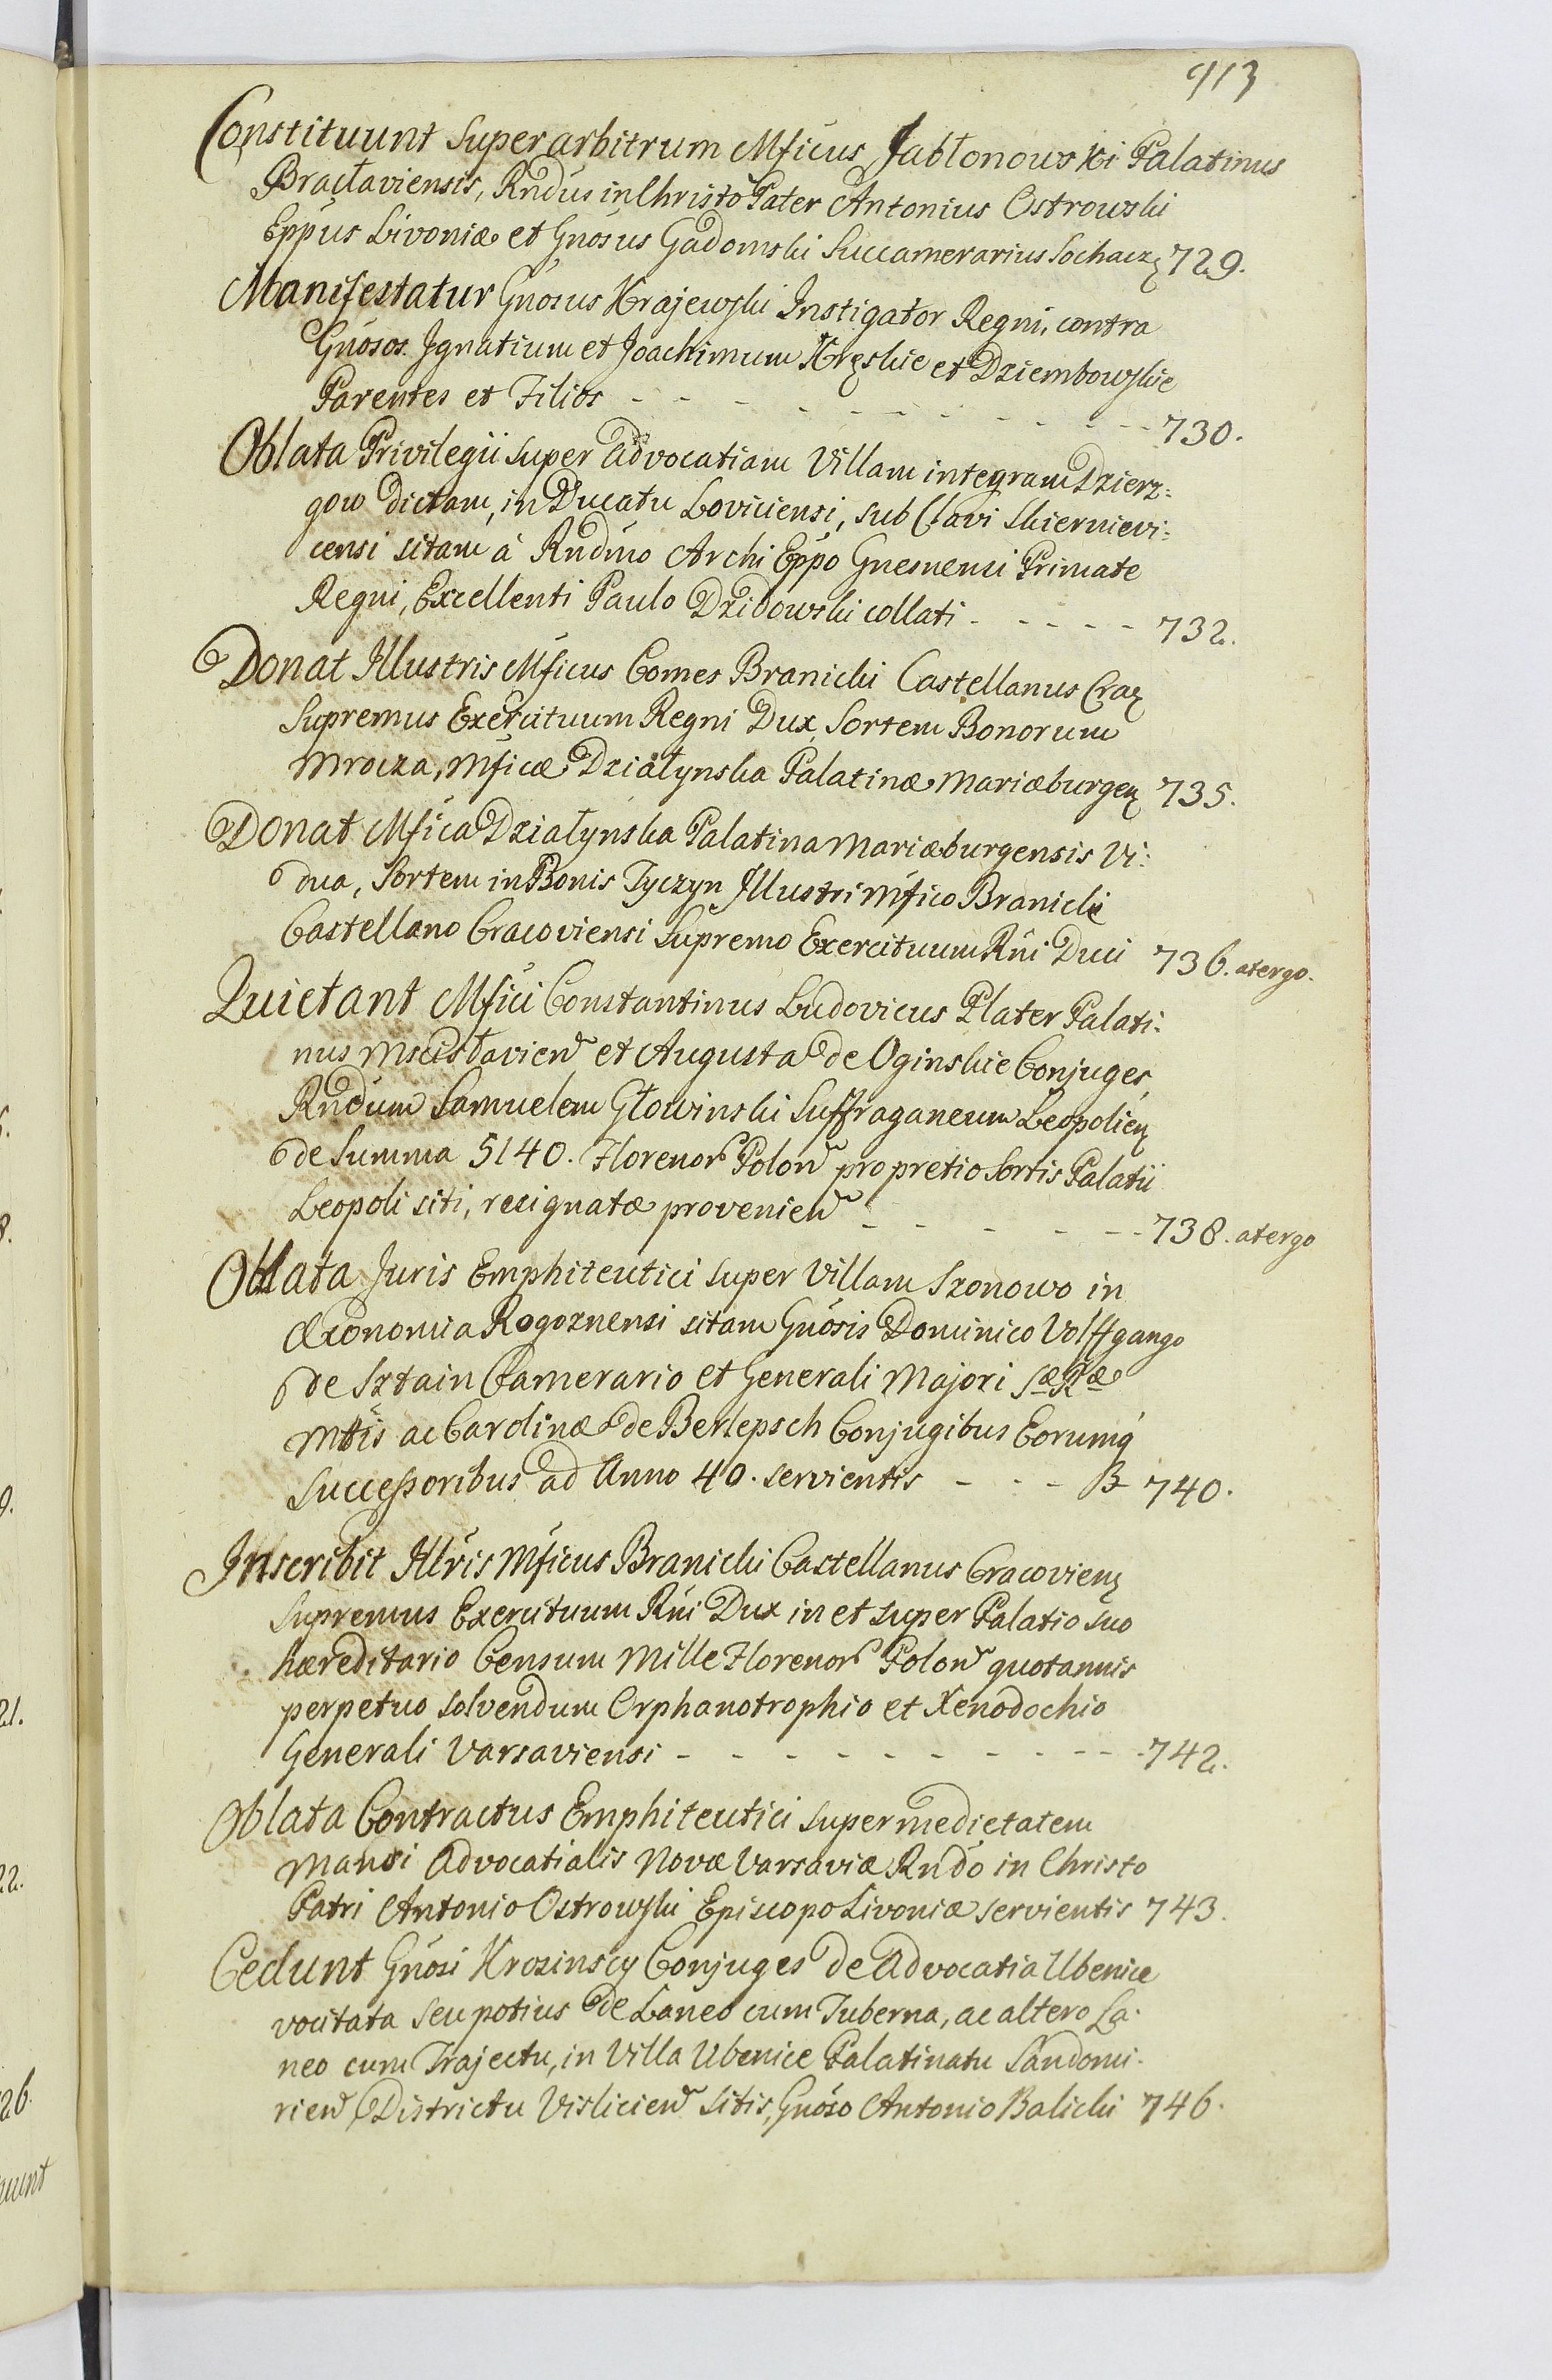 913
Constituunt Superarbitrum Mficus Jabłonowski Palatinus
Bracłaviensis, Rndus in Christo Pater Antonius Ostrowski
Eppus Livoniæ et Gnosus Gadomski Succamerarius Sochacz 729.
Manifestatur Gnosus Krajewski Instigator Regni, contra
Gnosos Ignatium et Joachimum Kręskie et Dziembowskie
Parentes et Filios - - - - - - - - - - 730.
Oblata Privilegii super advocatiam Villam integram Dzierz=
gow dictam, in Ducatu Loviciensi, sub Clavi Skiernievi=
censi sitam à Rndmo Archi Eppo Gnesnensi Primate
Regni, Excellenti Paulo Dzidowski collati - - - - - 732.
Donat Illustris Mficus Comes Branicki Castellanus Crac
Supremus Exercituum Regni Dux, Sortem Bonorum
Mrocza, Mficæ Działynska Palatinæ Mariæburgen 735.
Donat Mfica Działynska Palatina Mariæburgensis Vi=
dua, Sortem in Bonis Tyczyn Illustri Mfico Branicki
Castellano Cracoviensi Supremo Exercituum Rni Duci 736. atergo.
Quietant Mfici Constantinus Ludovicus Plater Palati=
nus Mscisłavien et Augusta de Oginskie Conjuges,
Rndum Samuelem Głowinski Suffraganeum Leopolien
de Summa 5140. Florenor Polon pro pretio Sortis Palatii
Leopoli siti, resignatæ provenien - - - - - - 738. atergo
Oblata Juris Emphiteutici super Villam Szonowo in
Œconomia Rogoznensi sitam Gnosis Dominico Volffgango
de Sztain Camerario et Generali Majori Sæ Ræ
Mttis ac Carolinæ de Berlepsch Conjugibus Eorumq
Successoribus ad Anno 40. servientis - - - B 740.
Inscribit Illris Mficus Branicki Castellanus Cracovien
Supremus Exercituum Rni Dux in et super Palatio suo
hæreditario Censum Mille Florenor Polon quotannis
perpetuo solvendum Orphanotrophio et Xenodochio
Generali Varsaviensi - - - - - - - - - - 742.
Oblata Contractus Emphiteutici super medietatem
Mansi Advocatialis Novæ Varsaviæ Rndo in Christo
Patri Antonio Ostrowski Episcopo Livoniæ servientis 743.
Cedunt Gnosi Krosinscy Conjuges de Advocatia Ubenice
vocitata seu potius de Laneo cum Taberna, ac altero La=
neo cum Trajectu, in Villa Ubenice Palatinatu Sandomi=
rien Districtu Vislicien sitis, Gnoso Antonio Balicki 746.